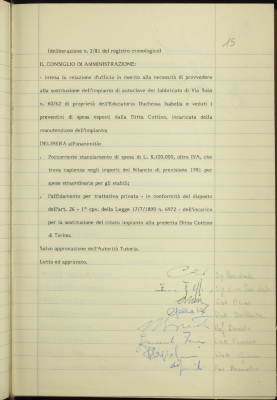 15
(deliberazione n. 2/81 del registro cronologico)
IL CONSIGLIO DI AMMINISTRAZIONE:
- intesa la relazione d'ufficio in merito alla necessità di provvedere
alla sostituzione dell'impianto di autoclave del fabbricato di Via
n. 60/62 di proprietà dell'Educatorio Duchessa Isabella e veduti i
preventivi di spesa esposti dalla Ditta Cottino, incaricata della
manutenzione dell'impianto;
DELIBERA all'unanimità:
. l'occorrente stanziamento di spesa di L. 8,100,000, oltre IVA, che
trova capienza negli importi del Bilancio di previsione 1981 per
spese straordinarie per gli stabili;
. l'affidamento per trattativa privata - in conformità del disposto
dell'art. 26 - 1° cpv. della Legge 17/7/1890 n. 6972 - dell'incarico
per la sostituzione del citato impianto alla predetta Ditta Cottino
di Torino.
Salvo approvazione dell'Autorità Tutoria.
Letto ed approvato.